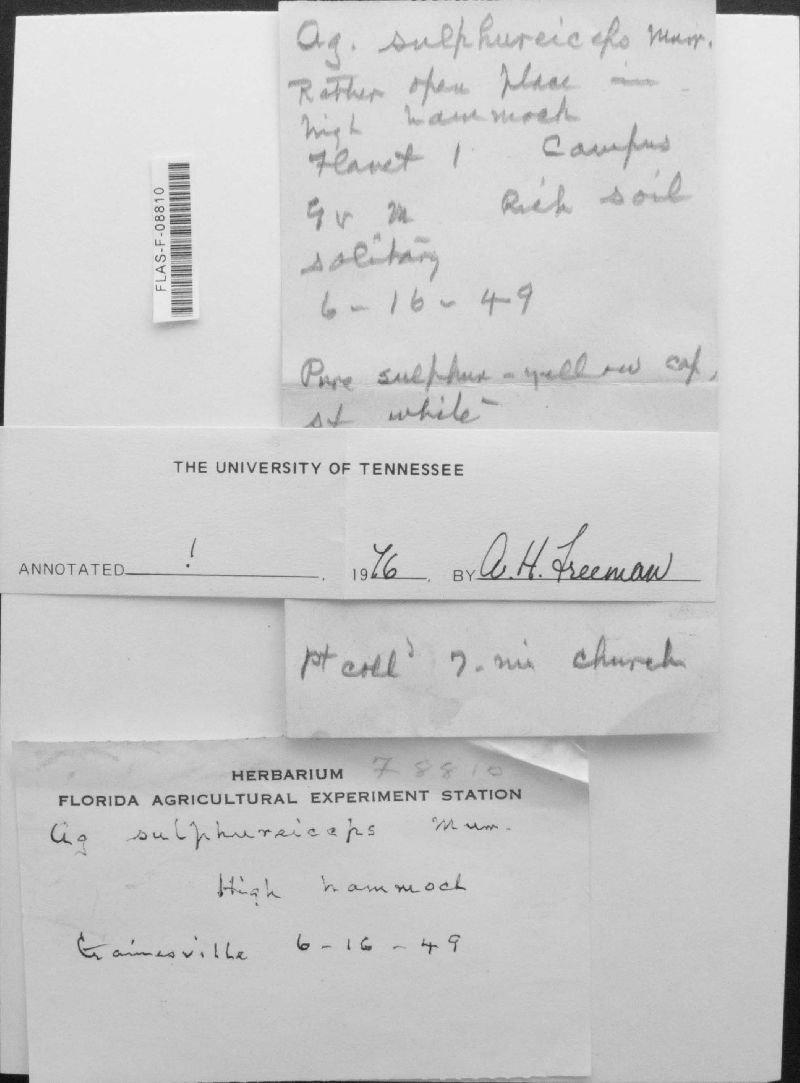 Ag. sulphureiceps Murr.
Rather open place in
high hammock
Flavet 1 Campus
Gv m Rich soil
solitary
6-16-49
Pure sulphur-yellow cap,
st white
FLAS-F-08810
THE UNIVERSITY OF TENNESSEE
ANNOTATED ! . 1976 . BY A.H. Freeman
pt coll church
HERBARIUM F8810
FLORIDA AGRICULTURAL EXPERIMENT STATION
Ag sulphureiceps Murr.
High hammock
Gainesville 6-16-49